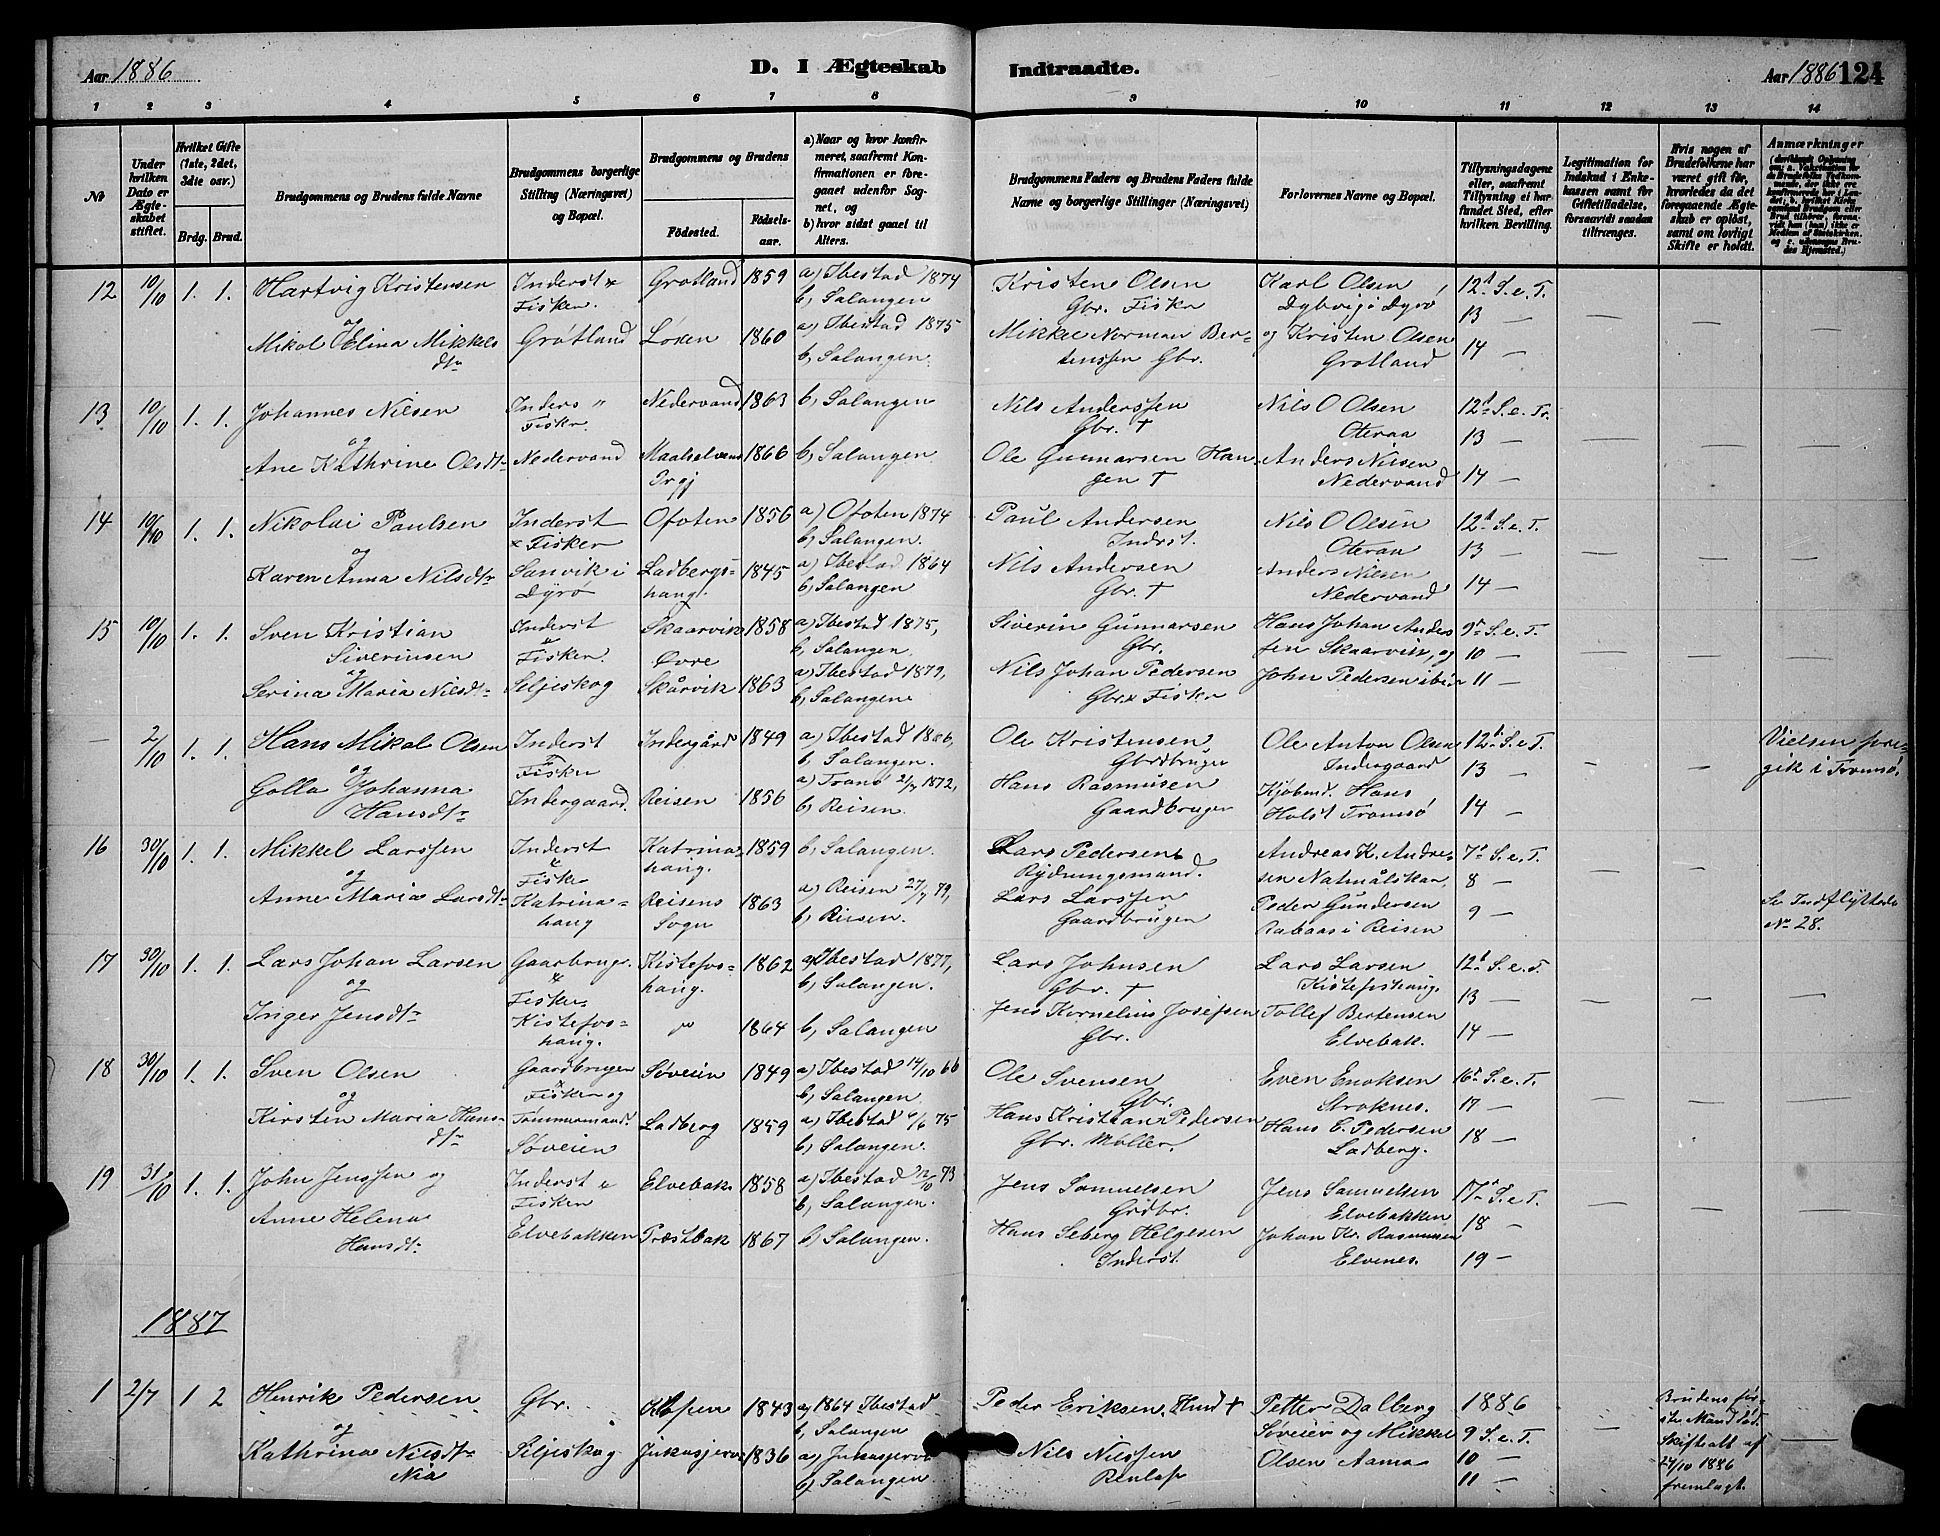 Aar 1886
D. I Ægteskab Indtraadte.
Aar 1886 124
1 2 3 4 5 6 7 8 9 10 11 12 13 14
№
Under hvilken Dato er Ægteskabet stiftet.
Hvilket Gifte (1ste, 2det, 3die osv.)
Brdg. Brud.
Brudgommens og Brudens fulde Navne
Brudgommens borgerlige Stilling (Næringsvei) og Bopæl.
Brudgommens og Brudens
Fødested.
Fødsels-aar.
a) Naar og hvor konfirmeret, saafremt Konfirmationen er foregaaet udenfor Sognet, og
b) hvor sidst gaaet til Alters.
Brudgommens Faders og Brudens Faders fulde Navne og borgerlige Stillinger (Næringsvei)
Forlovernes Navne og Bopæl.
Tillysningsdagene eller, saafremt Tillysning ei har fundet Sted, efter hvilken Bevilling.
Legitimation for Indskud i Enkekassen samt for Giftetilladelse, forsaavidt saadan tiltrænges.
Hvis nogen af Brudefolkene har været gift før, hvorledes da det foregaaende Ægteskab er opløst, samt om lovligt Skifte er holdt.
Anmærkninger
12 10/10 1. 1. Hartvig Kristensen
og
Mikol Elina Mikkels
dtr
Inderst &
Fisker.
Grøtland
Grøtland 1859
Løxen 1860
a) Ibestad 1874
b, Salangen
a) Ibestad 1875
b, Salangen.
Kristen Olsen
Gbr. Fisker
Mikkel Norman Ber-
tenssen Gbr.
Karl Olsen
Dybvig i Dyrø
og Kristen Olsen
Grøtland
12t S. e. T.
13 —
14 —
13 10/10 1. 1. Johannes Nilsen
og
Ane Kathrine Olsdtr
Inders "
Fiskr.
Nedervand
Nedervand 1863
Maalselvens 1866
Prgj
b, Salangen
b, Salangen.
Nils Anderssen
Gbr. †
Ole Gunnarsen Han-
sen †
Nils O Olsen
Oteraa
Anders Nilsen
Nedervand
12t S. e. Tr.
13 —
14 —
14 10/10 1. 1. Nikolai Paulsen
og
Karen Anna Nilsdtr
Inderst
& Fisker
Sanvik i
Dyrø
Ofoten 1856
Ladbergs- 1845
hang.
a) Ofoten 1874
b, Salangen.
a) Ibestad 1864
b, Salangen
Paul Andersen
Indrst.
Nils Andersen
Gbr. †
Nils O Olsen
Oteraa
Anders Nilsen
Nedervand
12t S. e. T.
13 —
14 —
15 10/10 1. 1. Sven Kristian
Siverinsen
og
Serina Maria Nilsdtr
Inderst
&
Fisker.
Seljeskog
Skaarvik 1858
Øvre
Skårvik 1863
a) Ibestad 1875,
b, Salangen.
a) Ibestad 1879,
b, Salangen
Siverin Gunnarsen
Gbr.
Nils Johan Pedersen
Gbr. & Fisker
Hans Johan Anders
sen Skaarvik, og
John Pedersen ibid.
9r S. e. T.
10 —
11 —
— 2/10 1. 1. Hans Mikal Olsen
og
Golla Johanna
Hansdtr
Inderst
Fisker
Indergaard.
Indergård 1849
Reisen 1856
a) Ibestad 1866,
b, Salangen.
a) Tranø 2/7 1872,
b, Reisen.
Ole Kristensen
Gbrdbruger
Hans Rasmusen
Gaardbruger
Ole Anton Olsen
Indergaard
Kjøbmd. Hans
Holst Tromsø
12t S. e T.
13 —
14 —
Vielsen fore-
gik i Tromsø.
16 30/10 1. 1. Mikkel Larssen
og
Anne Maria Larsdtr
Inderst
&
Fiske
Katrina-
hang
Katrina- 1859
hang.
Reisens 1863
Sogn
b, Salangen.
a) Reisen 27/7 79,
b, Reisen.
Lars Pedersen
Rydningsmand.
Lars Larssen
Gaardbrugen
Andreas K. Andre-
sen Natmålskar,
Peder Gundersen
Rabaas i Reisen
7r S. e. T.
8 —
9 —
Se Indflyttede
No 28.
17 30/10 1. 1. Lars Johan Larsen
og
Inger Jensdtr
Gaarbrugr.
&
Fisker.
Kistefos-
hang.
Kistefos- 1862
hang.
" 1864
a) Ibestad 1877,
b, Salangen.
b, Salangen
Lars Johnsen
Gbr. †
Jens Kornelius Josefsen
Gbr.
Lars Larsen
Kistefoshang.
Tollef Bertensen
Elvebak.
12t S. e. T.
13 —
14 —
18 30/10 1. 1. Sven Olsen
og
Kirsten Maria Hans-
dtr
Gaardbruger
&
Fisker og
Tømmermand.
Søveien
Søveien 1849
Ladberg 1859
a) Ibestad 14/10 66
b, Salangen.
a) Ibestad 6/6 75
b, Salangen.
Ole Svensen
Gbr.
Hans Kristian Pedersen
Gbr. Møller.
Even Enoksen
Stroknes.
Hans E. Pedersen
Ladberg.
16r S. e. T.
17 —
18 —
19 31/10 1. 1. John Jenssen og
Anne Helena
Hansdtr
Inderst &
Fisker
Elvebakken
Elvebak 1858
Præstbak 1867
a) Ibestad 12/10 73
b, Salangen.
b) Salangen.
Jens Samuelsen
Grdbr.
Hans Seberg Helgesen
Inderst.
Jens Samuelsen
Elvebakken
Johan Kr. Rasmussen
Elvenes.
17r S. e T.
18 —
19 —
1887
1 2/7 1 2 Henrik Pedersen
og
Kathrina Nilsdtr
Nia
Gbr.
Seljeskog
Kløpen 1843
Jukasjerv 1836
a) 1864 Ibestad
b, Salangen
a) Jukasjervi
b) Salangen
Peder Eriksen Hund †
Nils Nilssen
Renlap
Petter Dalberg
Søveien og Mikkel
Olsen Aarna
1886
9 S. e. T.
10 —
11 —
Brudens før-
ste Mand død.
Skifteatt af
24/10 1886
fremlagt.